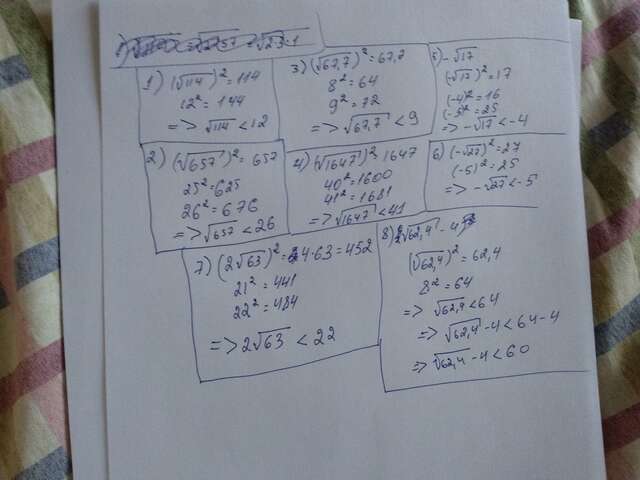 1) (√114)² = 114
12² = 144
=> √114 < 12
2) (√657)² = 657
25² = 625
26² = 676
=> √657 < 26
3) (√67,7)² = 67,7
8² = 64
9² = 72
=> √67,7 < 9
4) (√1647)² 1647
40² = 1600
41² = 1681
=> √1647 < 41
5) √17
(√17)² = 17
-4² = 16
(-5)² = 25
=> -√17 < -4
6) (-√27)² = 27
(-5)² = 25
=> -√27 < -5
7) (2√63)² = 4·63 = 452
21² = 441
22² = 484
=> 2√63 < 22
8) √62,4 - 4
(√62,4)² = 62,4
8² = 64
=> √62,4 < 64
=> √62,4 - 4 < 64 - 4
=> √62,4 - 4 < 60